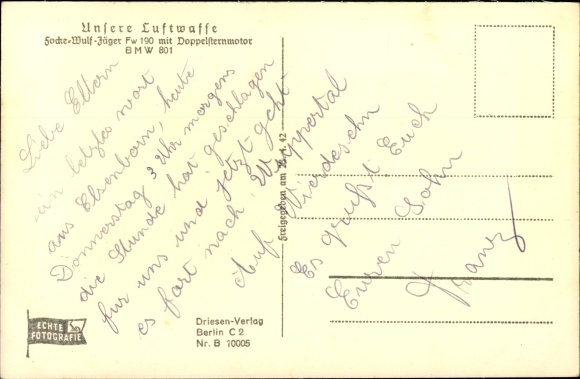 Unsere Luftwaffe
Focke-Wulf-Jäger Fw 190 mit Doppelsternmotor
BMW 801
Liebe Eltern
ein letztes wort
aus Elsenborn, heute
Donnerstag 3 Uhr morgens
die Stunde hat geschlagen
für uns und jetzt geht
es fort nach Wuppertal
Auf Wierdesehn
Es grußt Euch
Euren Sohn
Franz
Freigegeben am
42
ECHTE
FOTOGRAFIE
Driesen-Verlag
Berlin C 2
Nr. B 10005